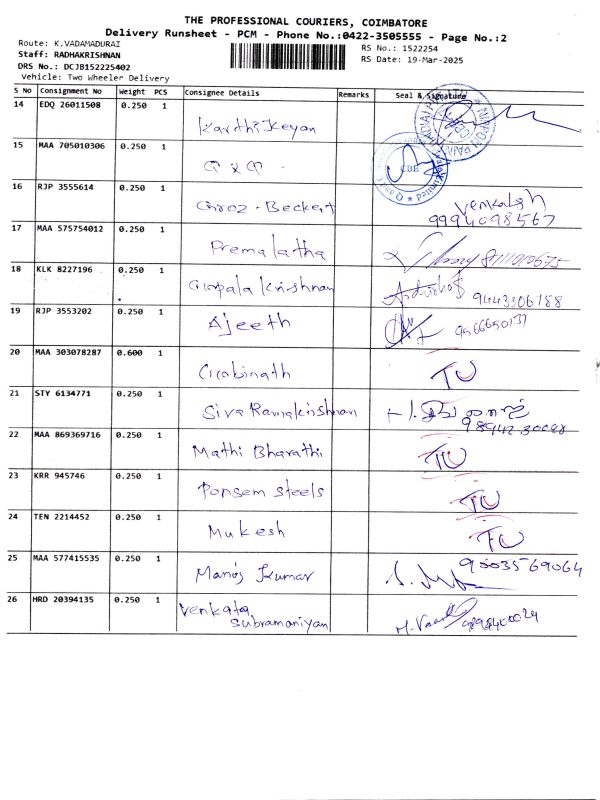 THE PROFESSIONAL COURIERS, COIMBATORE
Delivery Runsheet - PCM - Phone No.:0422-3505555 - Page No.:2
Route: K.VADAMADURAI
RS No.: 1522254
Staff: RADHAKRISHNAN
RS Date: 19-Mar-2025
DRS No.: DCJB152225402
Vehicle: Two Wheeler Delivery
S No Consignment No Weight PCS Consignee Details Remarks Seal & Signature
14 EDQ 26011508 0.250 1 Karthi Keyan
15 MAA 705010306 0.250 1 CBE
16 RJP 3555614 0.250 1 Groz - Beckert Venkatesh
9994098567
17 MAA 575754012 0.250 1 Premalatha
18 KLK 8227196 0.250 1 Gopala Krishnan 9443306188
19 RJP 3553202 0.250 1 Ajeeth 9566650137
20 MAA 303078287 0.600 1 TU
21 STY 6134771 0.250 1 Siva Ramakrishnan
22 MAA 869369716 0.250 1 Mathi Bharathi TU
23 KRR 945746 0.250 1 Ponsem steels TU
24 TEN 2214452 0.250 1 Mukesh TU
25 MAA 577415535 0.250 1 Manoj Kumar 9003569064
26 HRD 20394135 0.250 1 Venkata
Subramaniyan